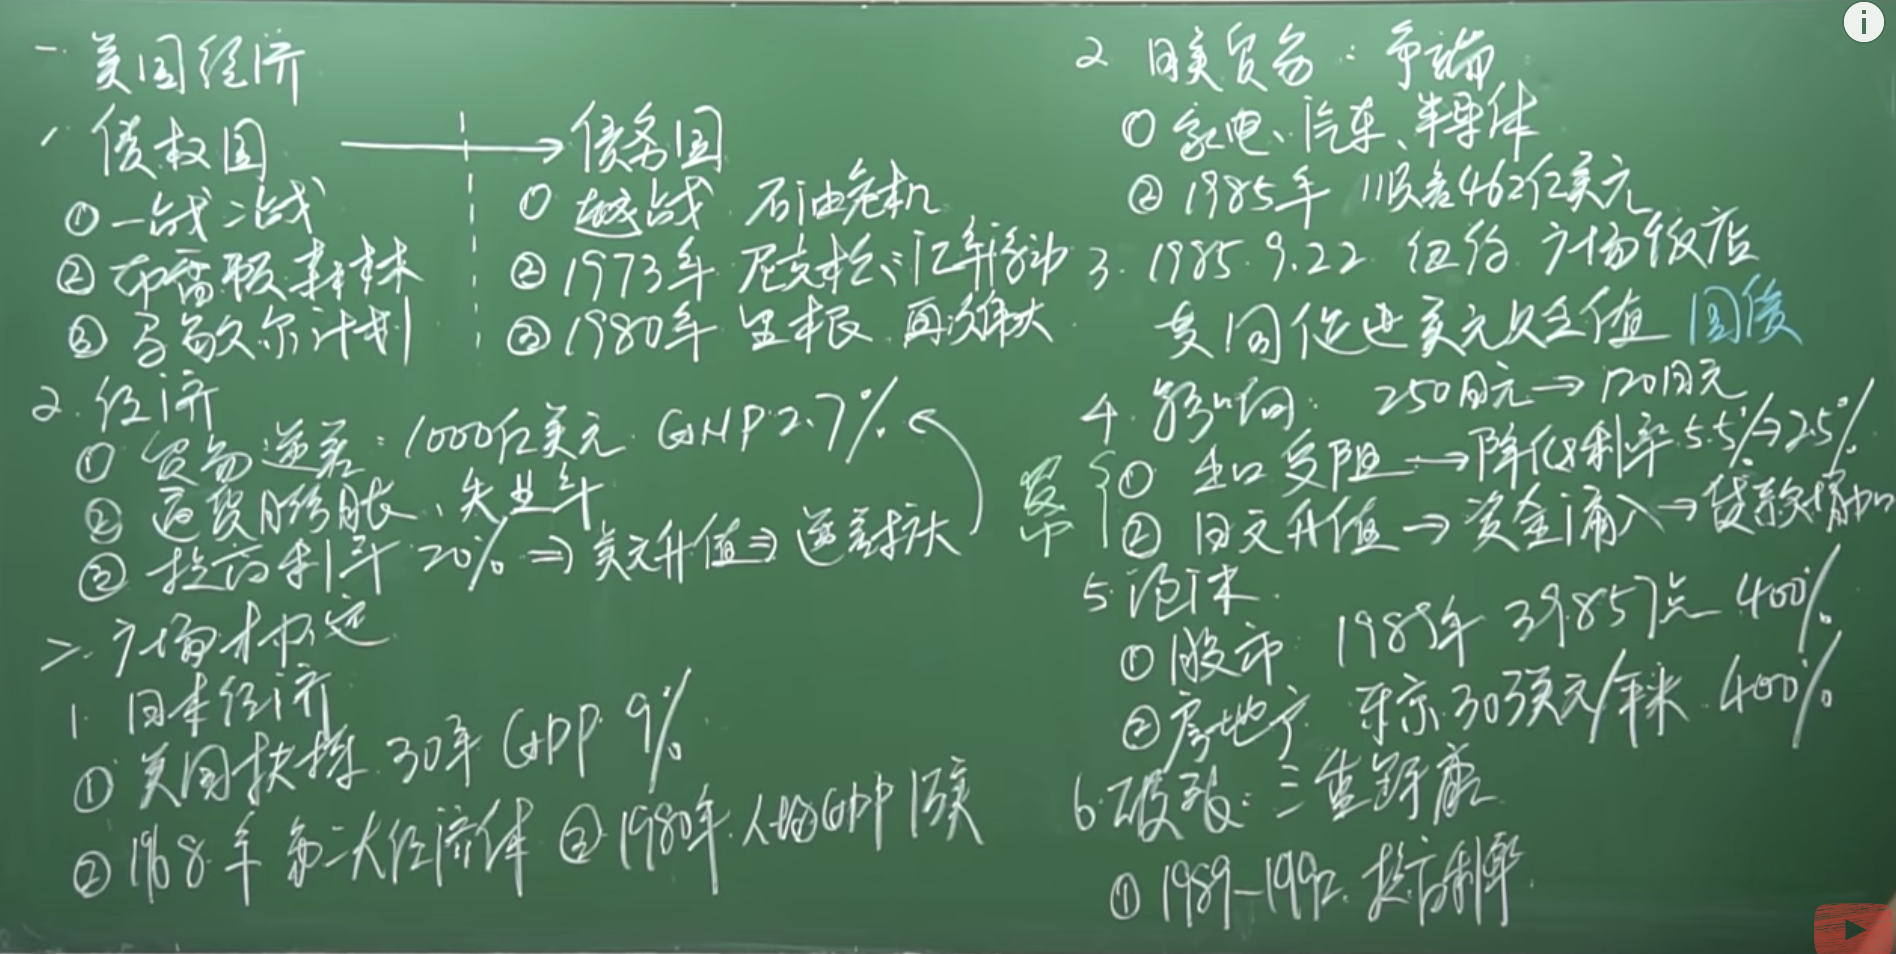 一. 美国经济
1 债权国 → 债务国
① 一战 二战
② 布雷顿森林
③ 马歇尔计划
① 越战 石油危机
② 1973年 尼克松: 汇率浮动
③ 1980年 里根 再次伟大
2. 经济
① 贸易逆差: 1000亿美元 GNP 2.7%
② 通货膨胀、失业率
③ 提高利率 20% ⇒ 美元升值 ⇒ 逆差扩大
二. 广场协定
1. 日本经济
① 美国扶持 30年 GDP 9%
② 1968年 第二大经济体 ③ 1980年 人均GDP 1万美
2 日美贸易: 争端
① 家电、汽车、半导体
② 1985年 顺差462亿美元
3. 1985.9.22 纽约 广场饭店
共同促进美元贬值 国债
4. 影响: 250日元 → 120日元
① 出口受阻 → 降低利率 5.5% → 2.5%
② 日元升值 → 资金涌入 → 贷款增加
货币
5. 泡沫
① 股市: 1989年 39857点 400%
② 房地产 东京 30万美元/平米 400%
6. 破裂: 三重
① 1989-1990. 提高利率